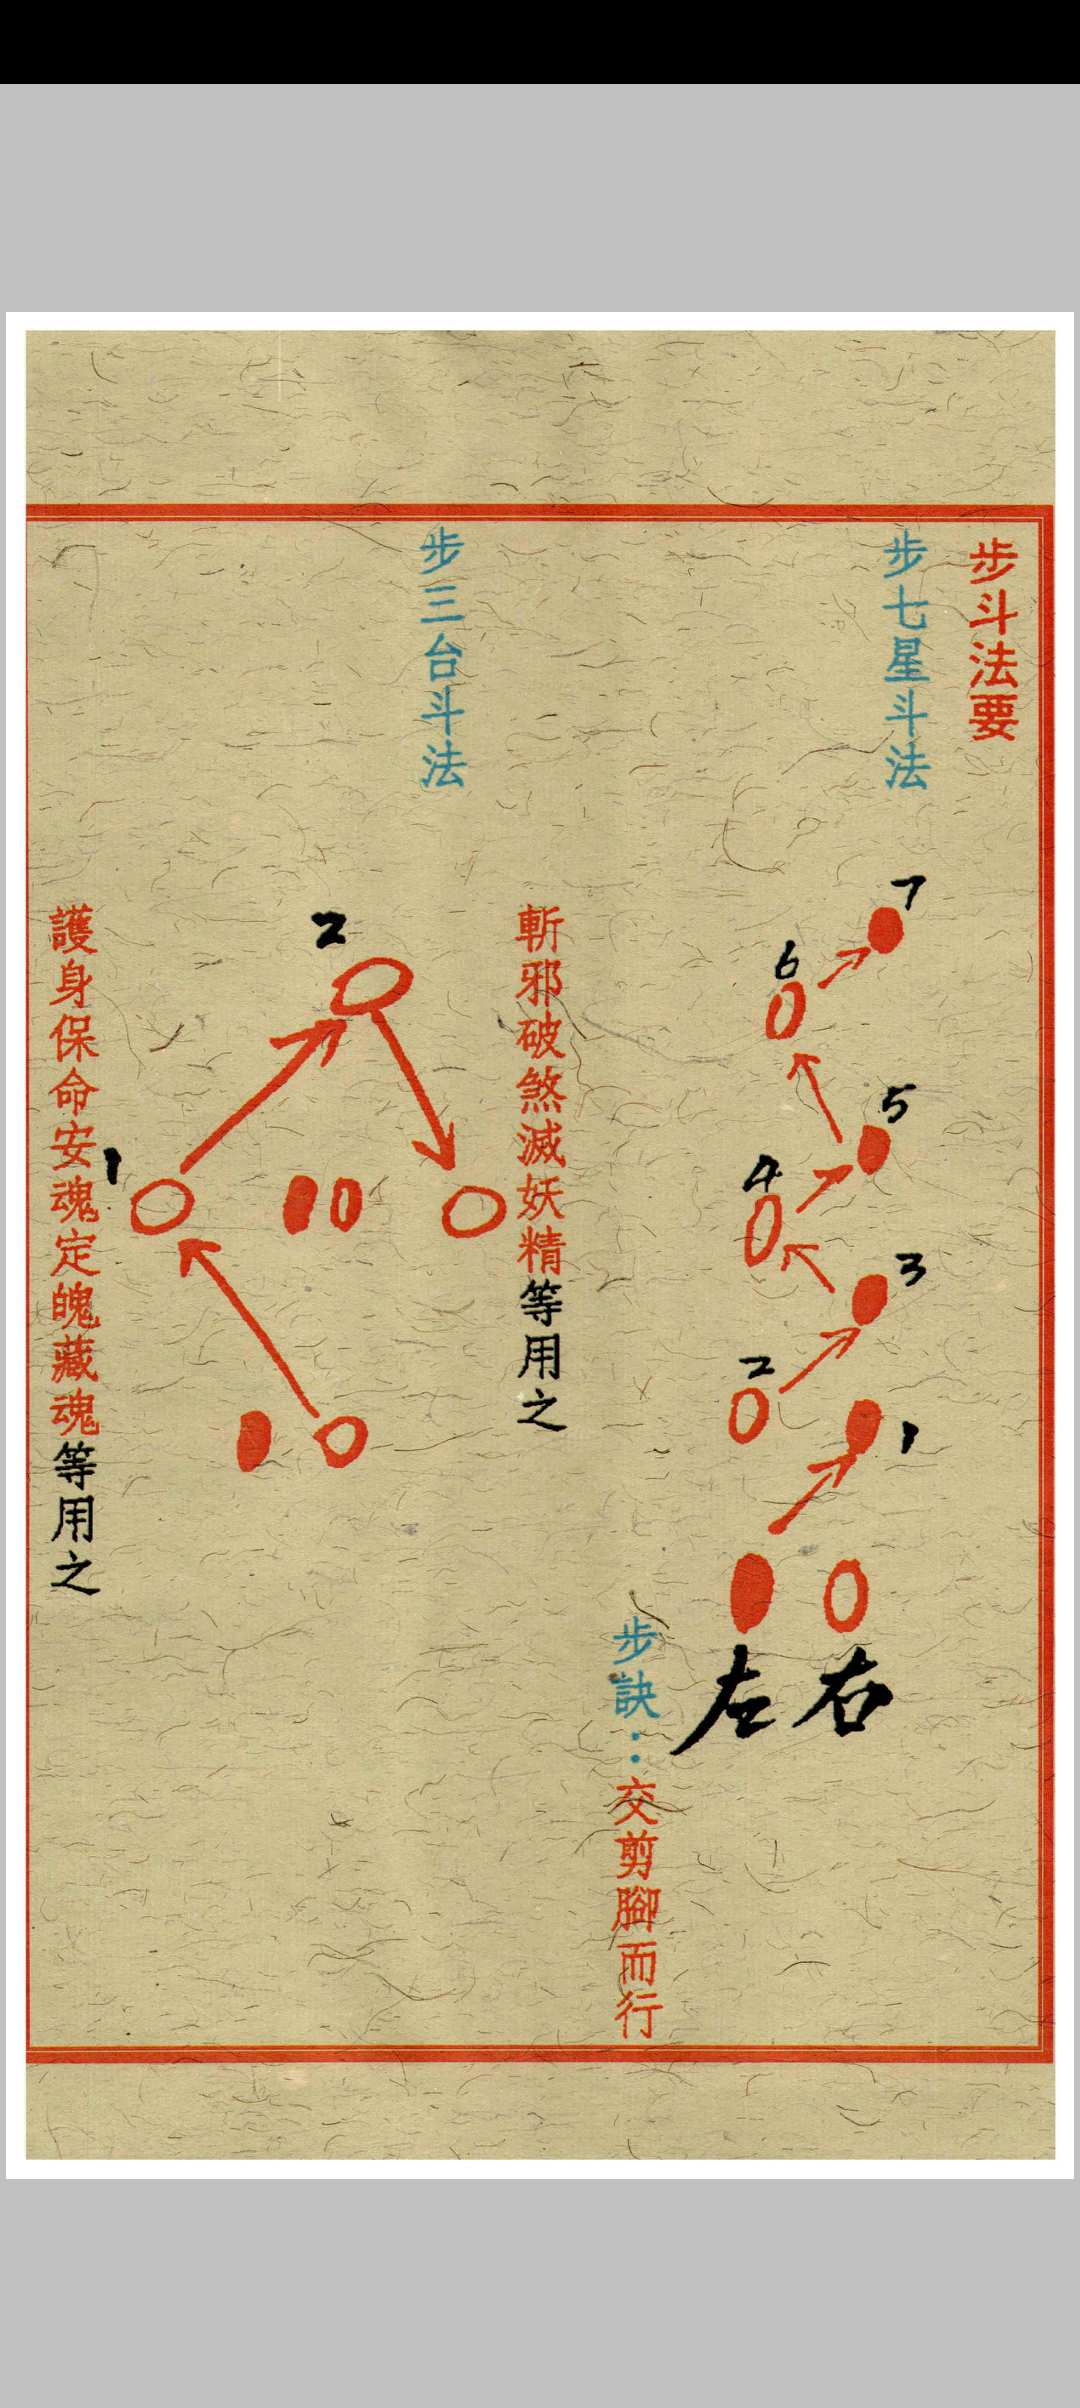 步斗法要
步七星斗法
7
6
5
4
3
2
1
左 右
步訣：交剪腳而行
斬邪破煞滅妖精等用之
步三台斗法
2
1
護身保命安魂定魄藏魂等用之